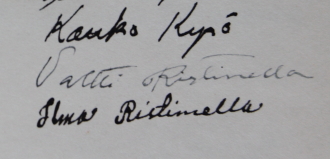 Kauko Kypö
Valtti Ristimella
Ilma Ristimella